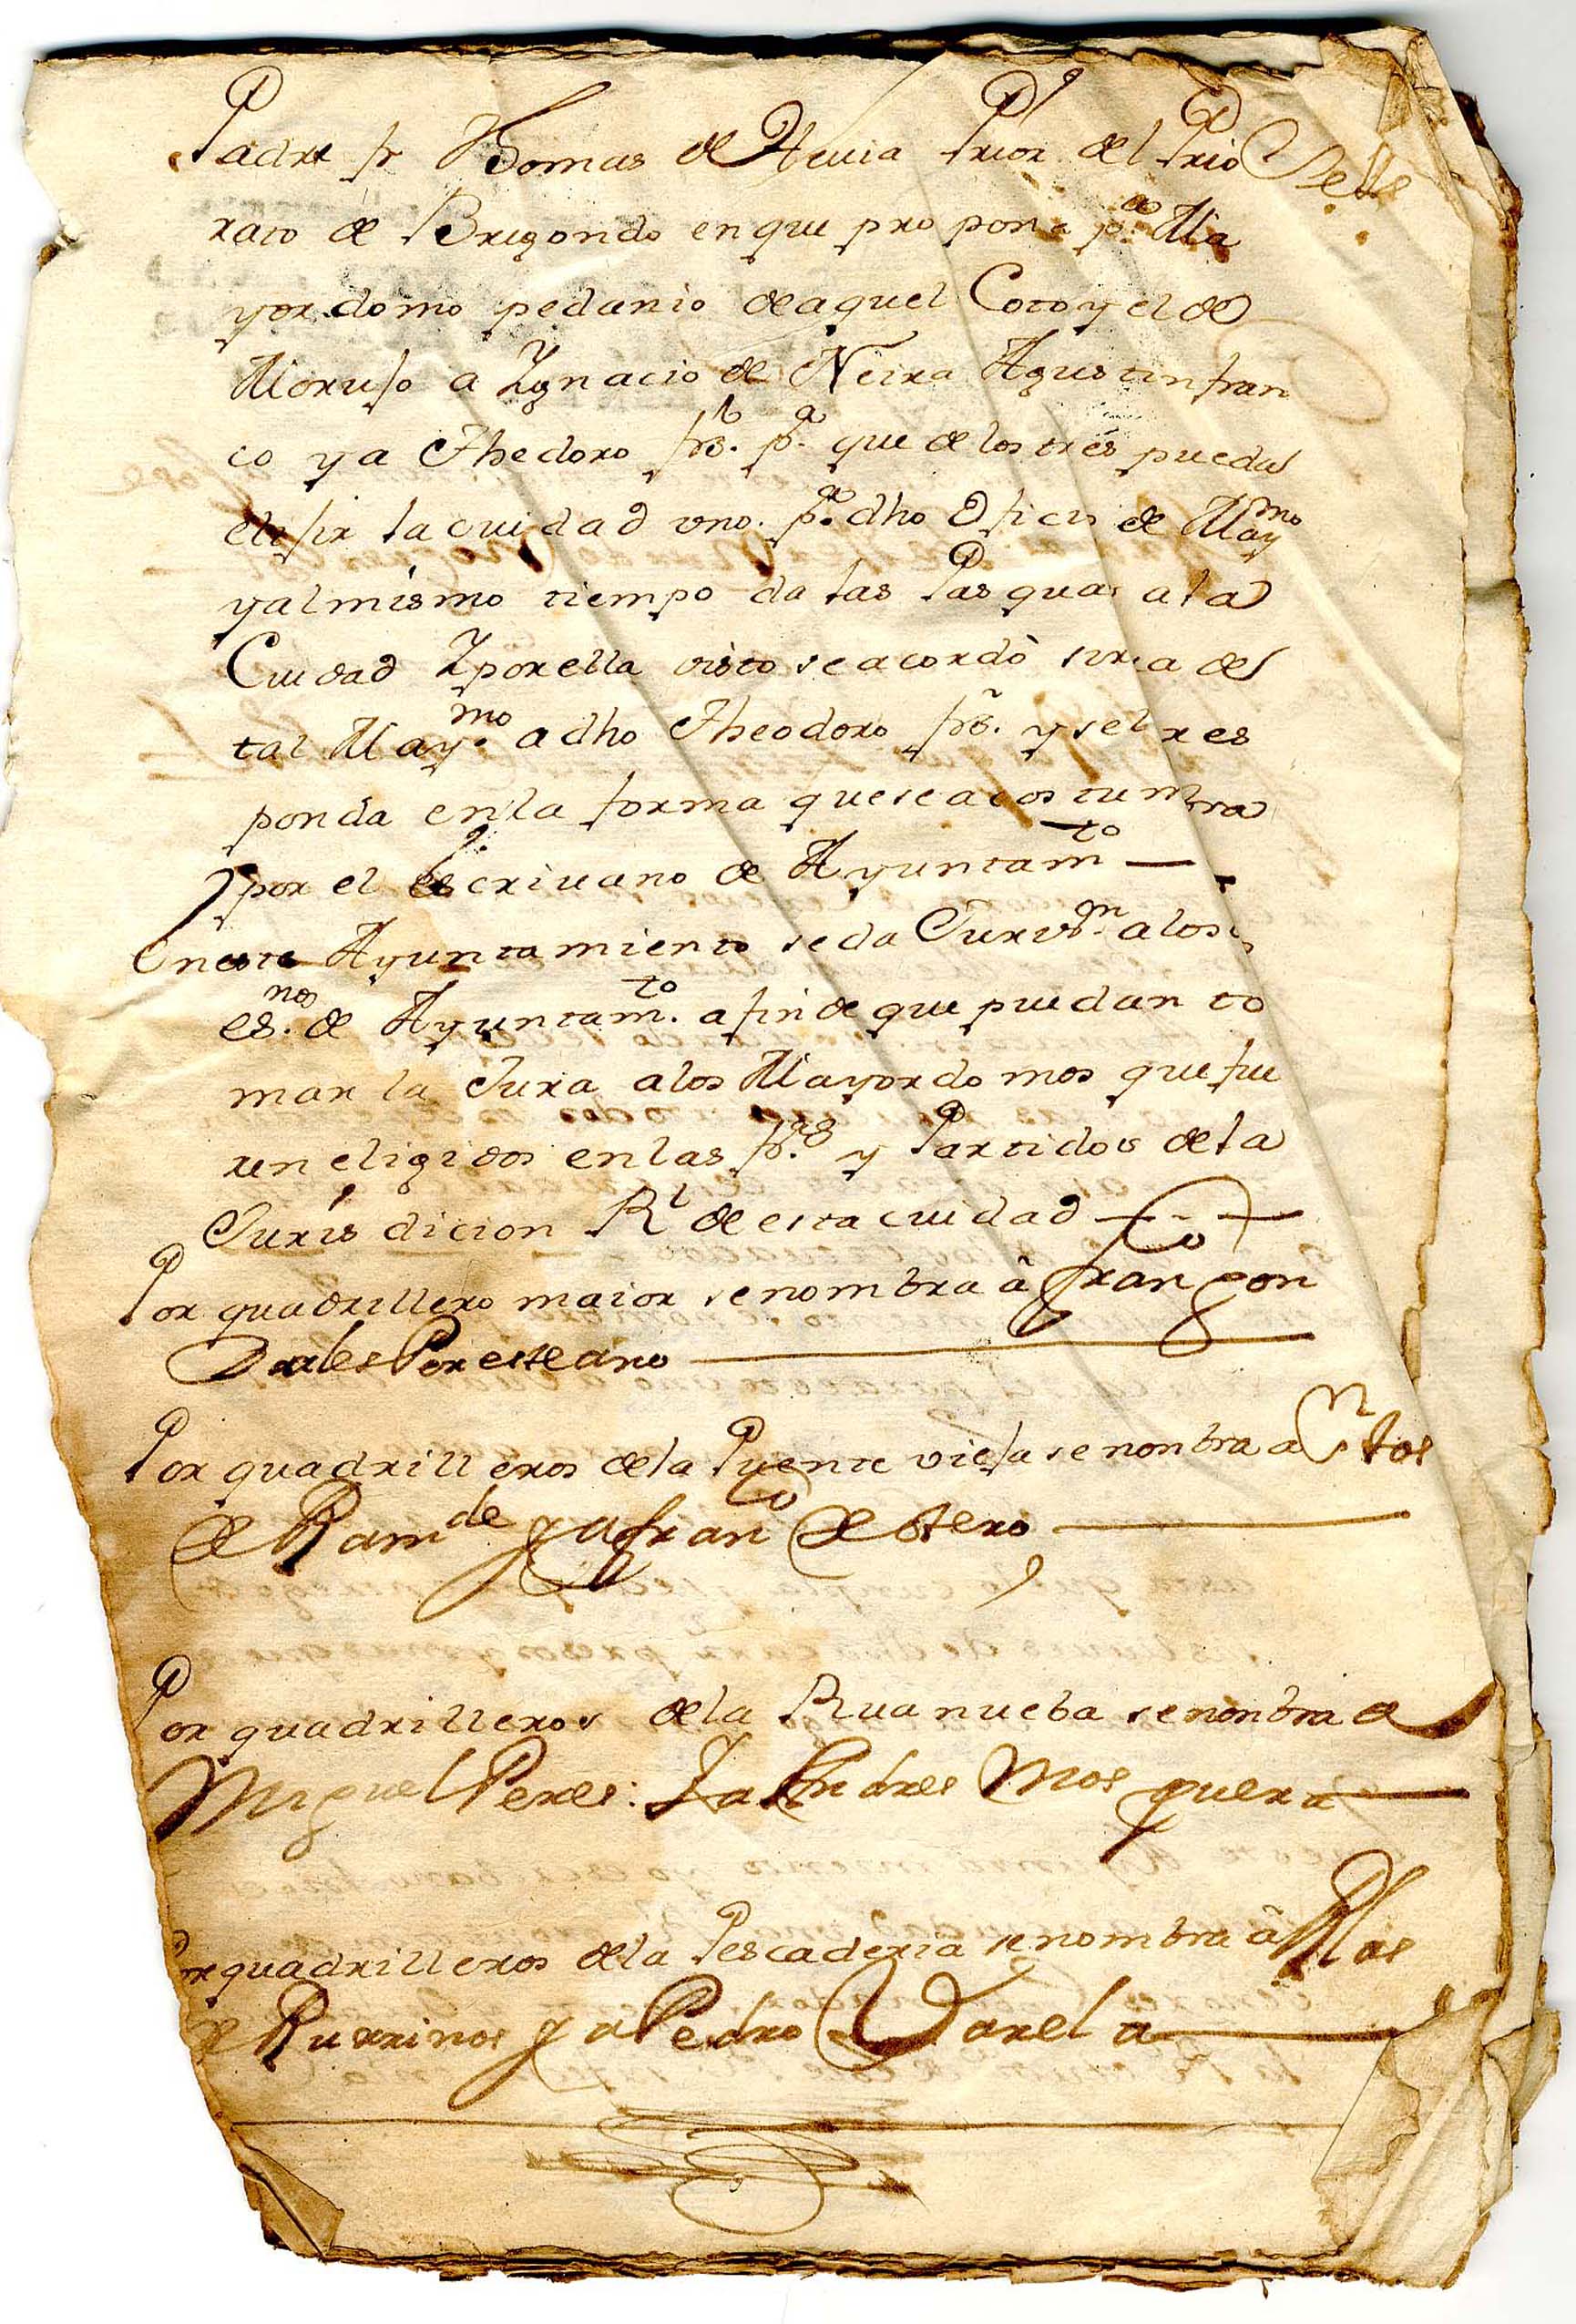 Padre fr Thomas de Hevia Prior del Prio
rato de Bregondo en que propone p.ª Ma
yordomo pedanio de aquel Coto y el de
Moruxo a Ygnacio de Neira Agustin fran
co y a Thedoro frz. p.ª que de los tres pueda
elejir la ciudad uno. p.ª dho Oficio de May.mo
y al mismo tiempo da las Pasquas a la
Ciudad Y por ella visto se acordò sirva de
tal May.mo a dho Theodoro frz. y se l res
ponda en la forma que se acostumbra
por el escrivano de Ayuntam.to
En este Ayuntamiento se da Jurisd.on a los
es.nos de Ayuntam.to a fin de que puedan to
mar la Jura a los Mayordomos que fue
ren eligidos en las fr.as y Partidos de la
Jurisdicion R.l de esta ciudad
Por quadrillero maior se nombra â fran.co gon
zales Por este año
Por quadrilleros de la Puente vieja se nonbra a
de Ram.de y a fran.co de Otero
Por quadrilleros de la Rua nueba se nonbra a
Miguel Peres: Y a Andres Mosquera
Por quadrilleros de la Pescaderia se nombra â Blas
de Burrinos y a Pedro Varela